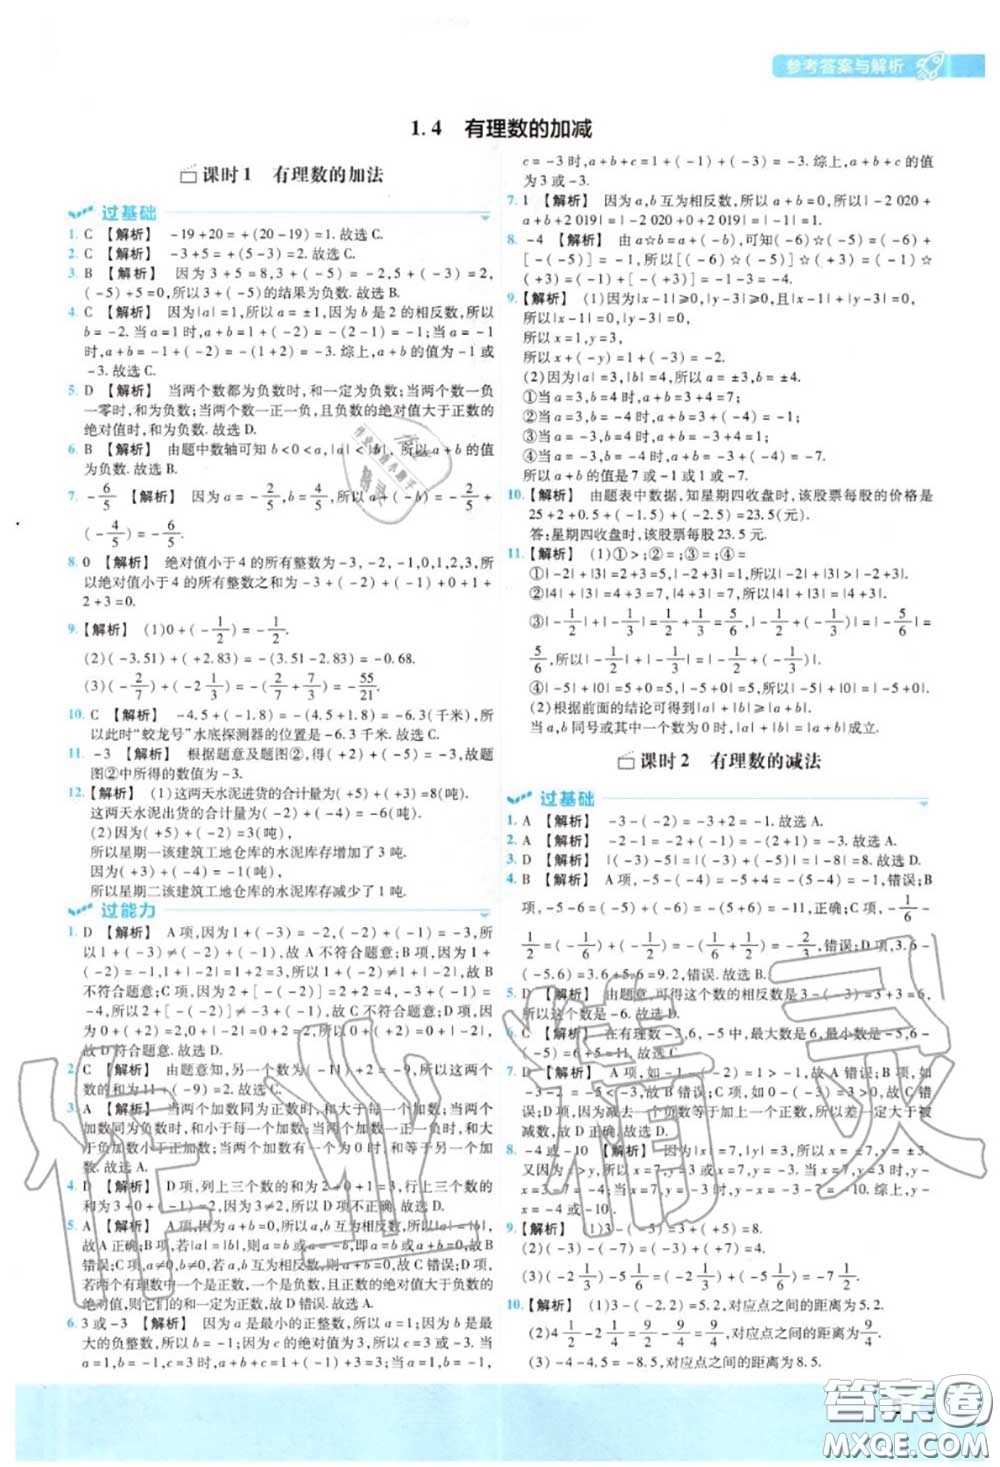 参考答案与解析
1.4 有理数的加减
课时1 有理数的加法
过基础
1. C 【解析】 -19+20=+(20-19)=1.故选C.
2. C 【解析】 -3+5=+(5-3)=2.故选C.
3. B 【解析】 因为3+5=8,3+(-5)=-2,5+(-3)=2,
(-5)+5=0,所以3+(-5)的结果为负数.故选B.
4. C 【解析】 因为|a|=1,所以a=±1,因为b是2的相反数,所以
b=-2.当a=1时,a+b=1+(-2)=-(2-1)=-1;当a=-1
时,a+b=-1+(-2)=-(1+2)=-3.综上,a+b的值为-1或
-3.故选C.
5. D 【解析】 当两个数都为负数时,和一定为负数;当两个数一负
一零时,和为负数;当两个数一正一负,且负数的绝对值大于正数的
绝对值时,和为负数.故选D.
6. B 【解析】 由题中数轴可知b<0<a,|a|<|b|,所以a+b的值
为负数.故选B.
7. -6/5 【解析】 因为a=-2/5,b=4/5,所以a+(-b)=-2/5+
(-4/5)=-6/5.
8. 0 【解析】 绝对值小于4的所有整数为-3,-2,-1,0,1,2,3,所
以绝对值小于4的所有整数之和为-3+(-2)+(-1)+0+1+
2+3=0.
9. 【解析】 (1)0+(-1/2)=-1/2.
(2)(-3.51)+(+2.83)=-(3.51-2.83)=-0.68.
(3)(-2/7)+(-2 1/3)=-(2/7+2 1/3)=-55/21
10. C 【解析】 -4.5+(-1.8)=-(4.5+1.8)=-6.3(千米),所
以此时“蛟龙号”水底探测器的位置是-6.3千米.故选C.
11. -3 【解析】 根据题意及题图②,得(+2)+(-5)=-3,故题
图②中所得的数值为-3.
12. 【解析】 (1)这两天水泥进货的合计量为(+5)+(+3)=8(吨).
这两天水泥出货的合计量为(-2)+(-4)=-6(吨).
(2)因为(+5)+(-2)=3(吨),
所以星期一该建筑工地仓库的水泥库存增加了3吨.
因为(+3)+(-4)=-1(吨),
所以星期二该建筑工地仓库的水泥库存减少了1吨.
过能力
1. D 【解析】 A项,因为1+(-3)=-2,(-2)+(-1)=-3,所
以1+(-3)≠(-2)+(-1),故A不符合题意;B项,因为1+
(-2)=-1,|-2|+(-1)=1,所以1+(-2)≠|-2|+(-1),故B
不符合题意;C项,因为2+[-(-2)]=4,-3+(-1)=
-4,所以2+[-(-2)]≠-3+(-1),故C不符合题意;D项,因为
0+(-2)=-2,-1+(-1)=-2,所以0+(-2)=-1+(-1),
故D符合题意.故选D.
2. C 【解析】 由题意知,另一个加数为(-11)+2=-9,所以正
确的和为11+(-9)=2.故选C.
3. A 【解析】 当两个加数同为正数时,和大于每一个加数;当两个
加数同为负数时,和小于每一个加数;当两个加数为一正一负时,和
大于负加数小于正加数;当两个加数有一个为0时,和等于另一个
加数.故选A.
4. D 【解析】 D项,列上三个数的和为1+2+0=3,行上三个数的
和为3+0+(-1)=2,故D不正确.故选D.
5. A 【解析】 A项,因为a+b=0,所以a,b互为相反数,所以|a|=|b|,
故A正确;B项,若|a|=|b|,则a=b或a+b=0,故B错误;C项,
错误;C项,a≠0,b≠0,若a,b互为相反数,则a+b=0,故C错误;D项,
若两个有理数中一个是正数,一个是负数,且正数的绝对值大于负数的绝
对值,则它们的和一定为正数,故D错误.故选A.
6. 3或-3 【解析】 因为a是最小的正整数,所以a=1.因为b是最
大的负整数,所以b=-1;因为c的绝对值为3,所以c=3或-3.当
a=1,b=-1,c=3时,a+b+c=1+(-1)+3=3;当a=1,b=-1,
c=-3时,a+b+c=1+(-1)+(-3)=-3.综上,a+b+c的值
为3或-3.
7. 1 【解析】 因为a,b互为相反数,所以a+b=0,所以|-2 020+
a+b+2 019|=|-2 020+0+2 019|=|-1|=1.
8. -4 【解析】 由a☆b=a+(-b),可知(-6)☆(-5)=(-6)+
[-(-5)]=-1,所以[(-6)☆(-5)]☆(+3)=(-1)☆
(+3)=(-1)+[-(+3)]=(-1)+(-3)=-4.
9. 【解析】 (1)因为|x-1|≥0,|y-3|≥0,且|x-1|+|y-3|=0,
所以|x-1|=0,|y-3|=0,
所以x=1,y=3,
所以x+(-y)=1+(-3)=-2.
(2)因为|a|=3,|b|=4,所以a=±3,b=±4.
①当a=3,b=4时,a+b=3+4=7;
②当a=3,b=-4时,a+b=3+(-4)=-1;
③当a=-3,b=4时,a+b=-3+4=1;
④当a=-3,b=-4时,a+b=-3+(-4)=-7.
所以a+b的值是7或-1或1或-7.
10. 【解析】 由题表中数据,知星期四收盘时,该股票每股的价格是
25+2+0.5+(-1.5)+(-2.5)=23.5(元).
答:星期四收盘时,该股票每股23.5元.
11. 【解析】 (1)①>;②=;③=;④=
①|-2|+|3|=2+3=5,|-2+3|=1,所以|-2|+|3|>|-2+3|.
②|4|+|3|=4+3=7,|4+3|=7,所以|4|+|3|=|4+3|.
③|-1/2|+|-1/3|=1/2+1/3=5/6,|-1/2+(-1/3)|=|-5/6|=
5/6,所以|-1/2|+|-1/3|=|-1/2+(-1/3)|.
④|-5|+|0|=5+0=5,|-5+0|=5,所以|-5|+|0|=|-5+0|.
(2)根据前面的结论可得到|a|+|b|≥|a+b|.
当a,b同号或其中一个数为0时,|a|+|b|=|a+b|成立.
课时2 有理数的减法
过基础
1. A 【解析】 -3-(-2)=-3+2=-1.故选A.
2. A 【解析】 -2-1=-2+(-1)=-(2+1)=-3.故选A.
3. D 【解析】 |(-3)-5|=|(-3)+(-5)|=|-8|=8.故选D.
4. B 【解析】 A项,-5-(-4)=-5+4=-1,错误;B
项,-5-6=(-5)+(-6)=-11,正确;C项,-1/6-
1/2=(-1/6)+(-1/2)=-(1/6+1/2)=-2/3,错误;D项,3.6-
(-5.6)=3.6+5.6=9.2,错误.故选B.
5. D 【解析】 由题意,可得这个数的相反数是3-(-3)=3+3=6,
所以这个数是-6.故选D.
6. C 【解析】 在有理数-3,6,-5中,最大数是6,最小数是-5,6-
(-5)=6+5=11.故选C.
8. -4或-10
9. 【解析】 (1)3-(-5)=3+(+5)=8.
(2)(-3)-(+2)=(-3)+(-2)=-5.
10. 【解析】 (1)3-(-2.2)=5.2,对应点之间的距离为5.2.
(3)-4-4.5=-8.5,对应点之间的距离为8.5.
作业精灵
答案圈
MXQE.COM